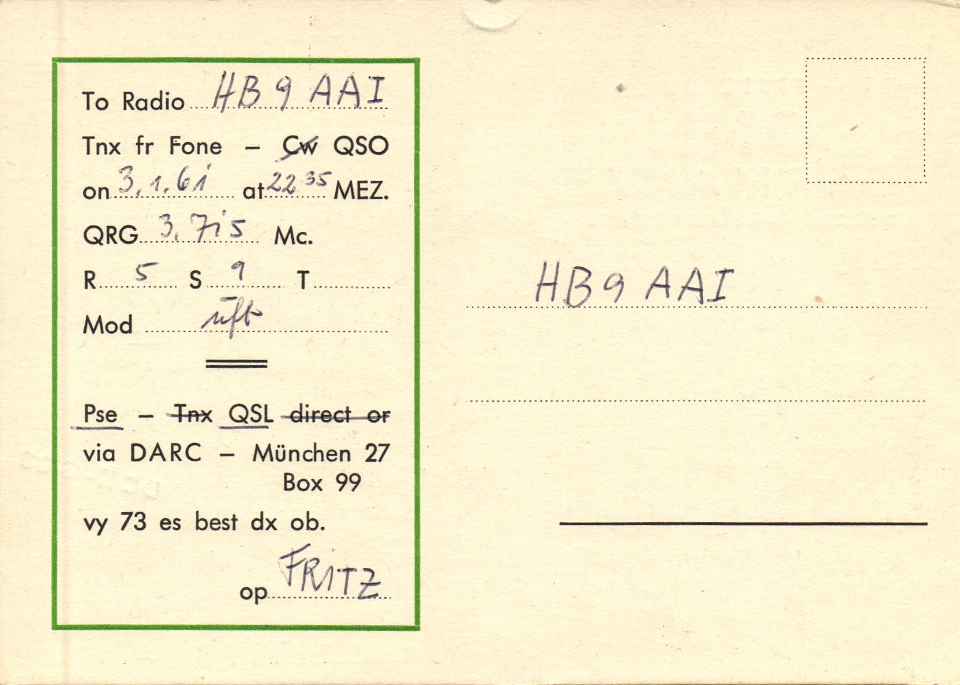 To Radio HB9AAI
Tnx fr Fone – Cw QSO
on 3.1.61 at 22 35 MEZ.
QRG 3.715 Mc.
R 5 S 9 T
Mod ufb
Pse – Tnx QSL direct or
via DARC – München 27
Box 99
vy 73 es best dx ob.
op FRITZ
HB9AAI